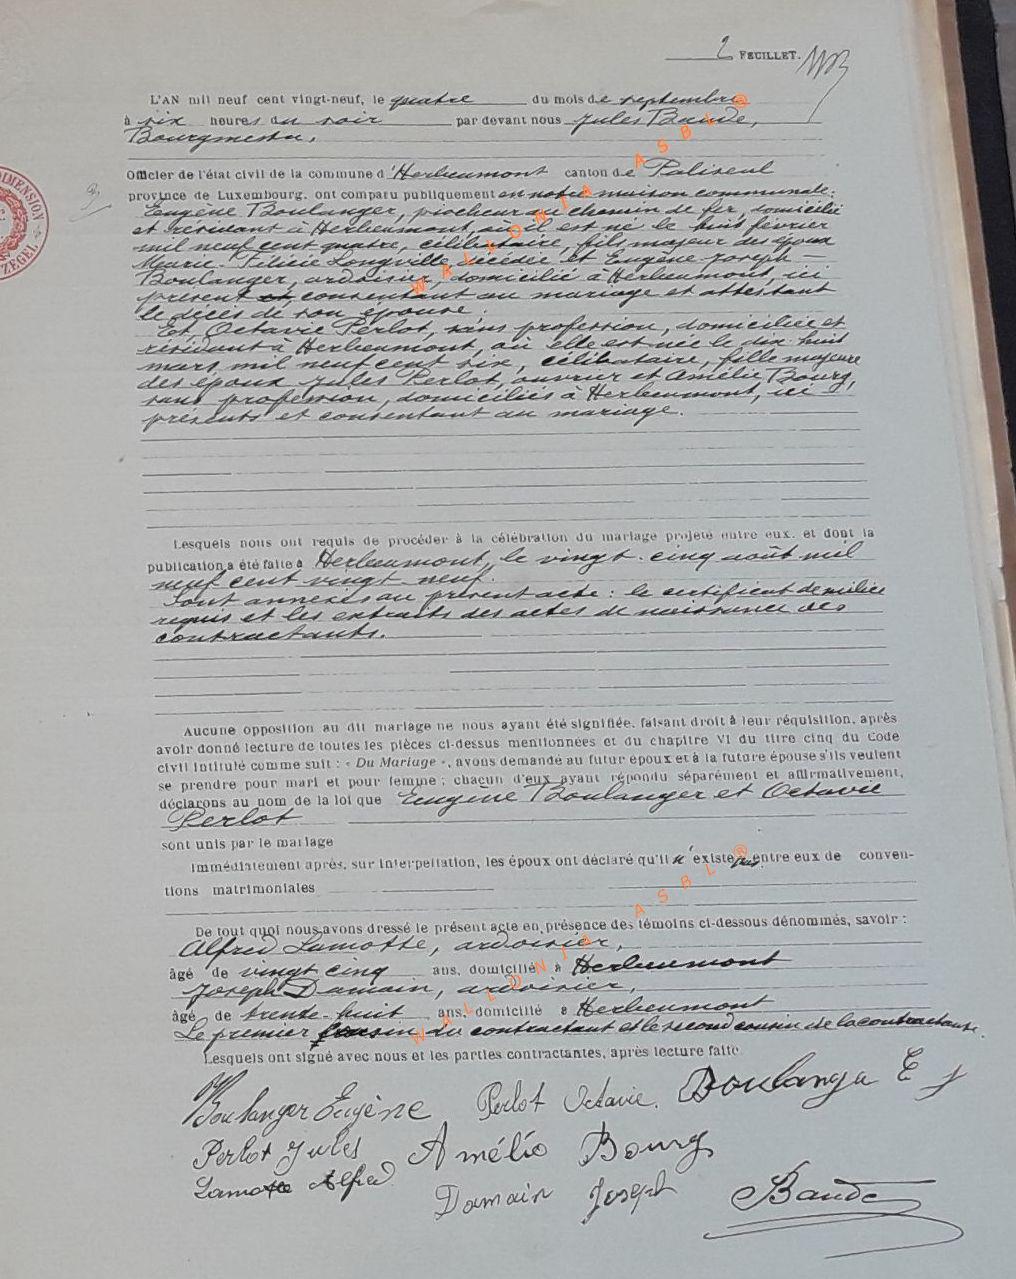 2 FEUILLET.
L'AN mil neuf cent vingt-neuf, le quatre du mois de septembre
à six heures du soir par devant nous Jules Baude,
Bourgmestre,
Officier de l'état civil de la commune d'Herbeumont canton de Paliseul
province de Luxembourg, ont comparu publiquement en notre maison communale:
Eugène Boulanger, piocheur au chemin de fer, domicilié
et résidant à Herbeumont, où il est né le huit février
mil neuf cent quatre, célibataire, fils majeur des époux
Marie-Félicie Longville décédée et Eugène Joseph -
Boulanger, ardoisier, domicilié à Herbeumont, ici
présent consentant au mariage et attestant
le décès de son épouse.
Et Octavie Perlot, sans profession, domiciliée et
résidant à Herbeumont, où elle est née le dix-huit
mars mil neuf cent six, célibataire, fille majeure
des époux Jules Perlot, ouvrier et Amélie Bourg,
sans profession, domiciliés à Herbeumont, ici
présents et consentant au mariage.
Lesquels nous ont requis de procéder à la célébration du mariage projeté entre eux, et dont la
publication a été faite à Herbeumont, le vingt-cinq août mil
neuf cent vingt neuf.
Sont annexés au présent acte: le certificat de milice
requis et les extraits des actes de naissance des
contractants.
Aucune opposition au dit mariage ne nous ayant été signifiée, faisant droit à leur réquisition, après
avoir donné lecture de toutes les pièces ci-dessus mentionnées et du chapitre VI du titre cinq du Code
civil intitulé comme suit : « Du Mariage », avons demandé au futur époux et à la future épouse s'ils veulent
se prendre pour mari et pour femme ; chacun d'eux ayant répondu séparément et affirmativement,
déclarons au nom de la loi que Eugène Boulanger et Octavie
Perlot
sont unis par le mariage
Immédiatement après, sur interpellation, les époux ont déclaré qu'il n'existe pas entre eux de conven-
tions matrimoniales
De tout quoi nous avons dressé le présent acte en présence des témoins ci-dessous dénommés, savoir :
Alfred Lamotte, ardoisier,
âgé de vingt cinq ans, domicilié à Herbeumont
Joseph Damain, ardoisier,
âgé de trente-huit ans, domicilié à Herbeumont
Le premier cousin du contractant et le second cousin de la contractante.
Lesquels ont signé avec nous et les parties contractantes, après lecture faite
Boulanger Eugène Perlot Octavie. Boulanger E J
Perlot Jules Amélie Bourg
Lamotte Alfred Damain Joseph Baude
DIMENSION
ZEGEL
WALLONIA ASBL ®
WALLONIA ASBL ®